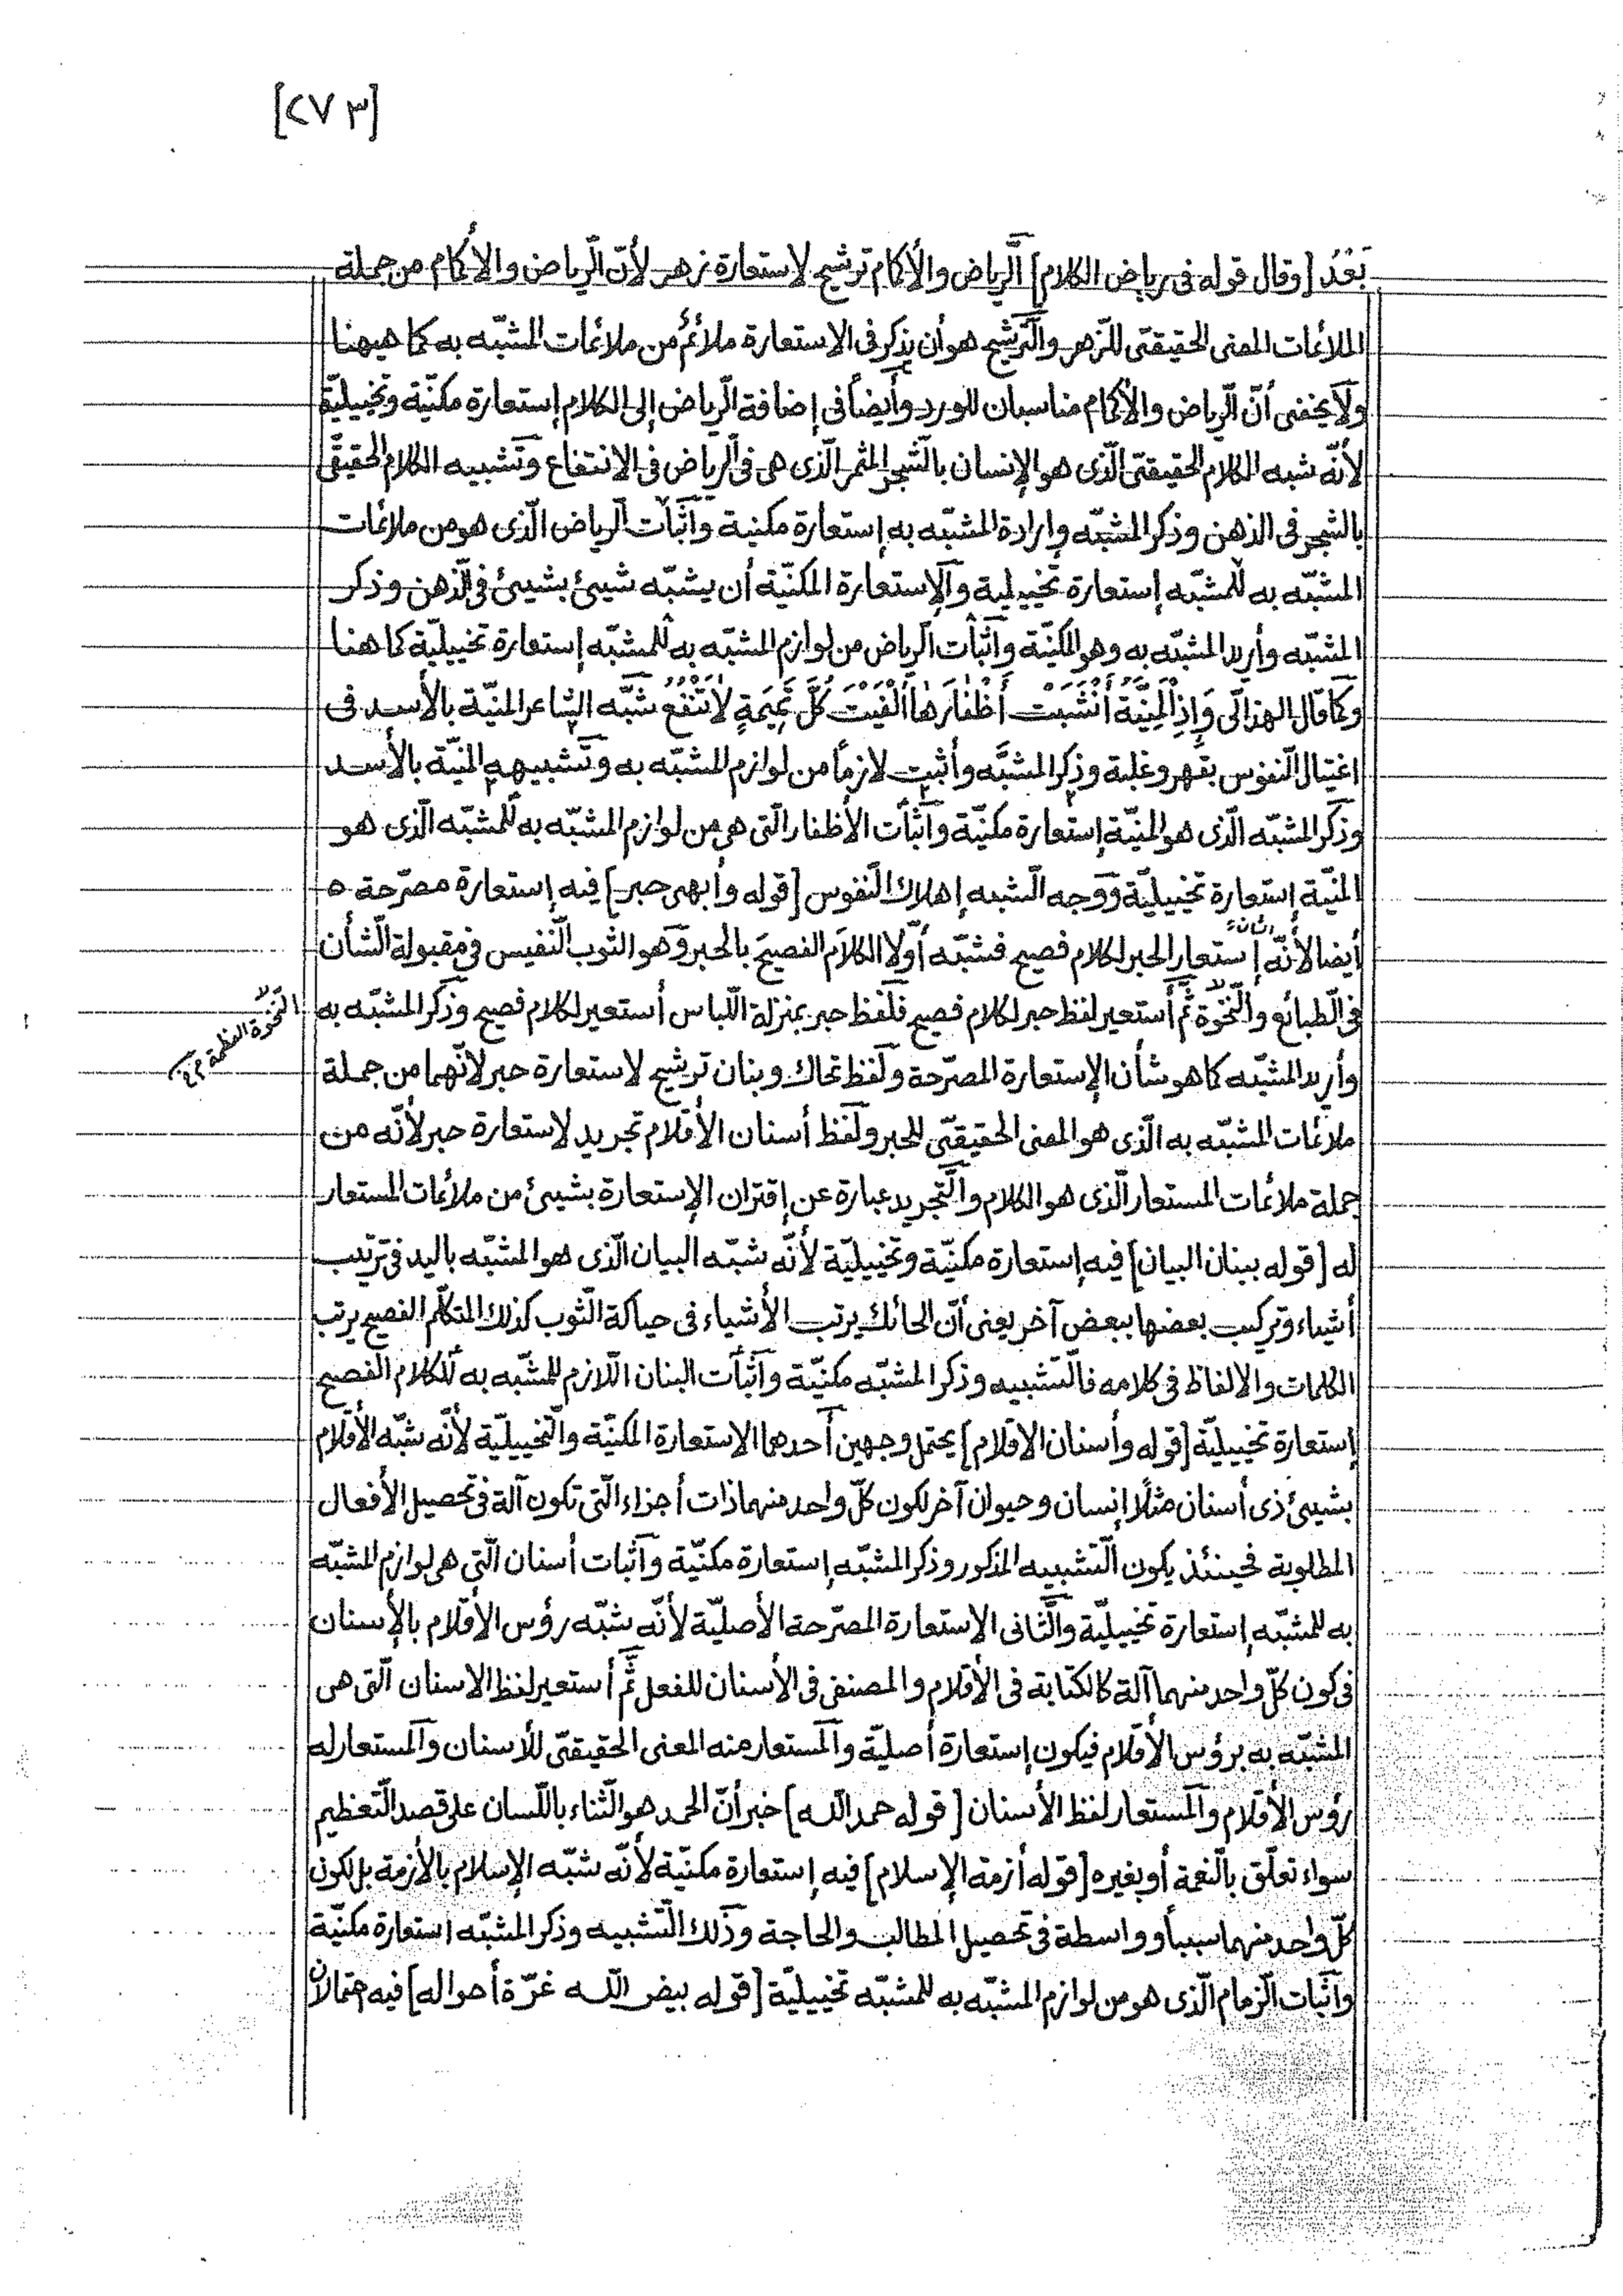 [٢٧٣]
بَعْدُ [وقال قوله فى رياض الكلام] الرّياض والأكمام ترشيح لاستعارة زهر لأنّ الرّياض والأكمام من جملة
الملائمات المعنى الحقيقىّ للزّهر والتّرشيح هو أن يذكر فى الاستعارة ملائمٌ من ملائمات المشبّه به كما هيهنا
ولا يخفى أنّ الرّياض والأكمام مناسبان للورد وأيضاً فى إضافة الرّياض إلى الكلام إستعارة مكنّية وتخييليّة
لأنّه شبه الكلام الحقيقىّ الّذى هو الإنسان بالشّجر المثمر الّذى هى فى الرياض فى الانتفاع وتشبيه الكلام الحقيقّى
بالشجر فى الذهن وذكر المشبّه وإرادة المشبّه به إستعارة مكنية واثبات الرياض الّذى هو من ملائمات
المشبّه به للمشبّه إستعارة تخييلية والإستعارة المكنّية أن يشبّه شيئ بشيئ فى الذّهن وذكر
المشبّه وأريد المشبّه به وهو المكنّية واثبات الرياض من لوازم المشبّه به للمشبّه إستعارة تخييليّة كما هنا
وكما قال الهذالى وَإِذِ الْمَنِيَّةُ أَنْشَبَتْ أَظْفَارَهَا أَلْفَيْتَ كُلَّ تَمِيمَةٍ لاَتَنْفَعُ شبّه الشاعر المنيّة بالأسد فى
اغتيال النّفوس بقهر وغلبة وذكر المشبَّه وأثبت لازماً من لوازم المشبّه به وتشبيهه المنيّة بالأسد
وذكر المشبّه الّذى هو المنيّة إستعارة مكنيّة واثبات الأظفار الّتى هى من لوازم المشبّه به للمشبّه الّذى هو
المنيّة إستعارة تخييليّة ووجه الشّبه إهلاك النّفوس [قوله وأبهى حبر] فيه إستعارة مصرّحة ه
أيضا لأنّه إستعار الحبر لكلام فصيح فشبّه أوّلا الكلامَ الفصيحَ بالحبر وهو الثوب النّفيس فى مقبولة الشّأن
فى الطّبائع والنّخوة ثمّ أستعير لفظ حبر لكلام فصيح فلفظ حبر بمنزلة اللّباس أستعير لكلام فصيح وذكر المشبّه به
النّخوة العظمة
وأريد المشبّه كما هو شأن الإستعارة المصرّحة ولفظ تحاك وبنان ترشيح لاستعارة حبر لانّهما من جملة
ملائمات المشبّه به الّذى هو المعنى الحقيقىّ للحبر ولفظ أسنان الأقلام تجريد لاستعارة حبر لأنّه من
جملة ملائمات المستعار الّذى هو الكلام والتّجريد عبارة عن إقتران الإستعارة بشيئ من ملائمات المستعار
له [قوله ببنان البيان] فيه إستعارة مكنيّة وتخييليّة لأنّه شبّه البيان الّذى هو المشبّه باليد فى ترتيب
أشياء وتركيب بعضها ببعض آخر يعنى أنّ الحائك يرتب الأشياء فى حياكة الثّوب كذلك المتكلّم الفصيح يرتب
الكلمات والالفاظ فى كلامه فالتّشبيه وذكر المشبّه مكنيّة واثبات البنان اللّازم للمشبّه به للكلام الفصيح
إستعارة تخييليّة [قوله وأسنان الاقلام] يحتمل وجهين أحدهما الاستعارة المكنيّة والتّخييليّة لأنّه شبّه الأقلام
بشيئ ذى أسنان مثلًا إنسان وحيوان آخر لكون كلّ واحد منهما ذات أجزاء الّتى تكون آلة فى تحصيل الأفعال
المطلوبة فحينئذ يكون التّشبيه المذكور وذكر المشبّه إستعارة مكنيّة واثبات أسنان الّتى هى لوازم المشبّه
به للمشبّه إستعارة تخييليّة والثّانى الاستعارة المصرّحة الأصليّة لأنّه شبّه رؤس الأقلام بالأسنان
فى كون كلّ واحد منهما آلة كالكتابة فى الأقلام والمصنغى فى الأسنان للفعل ثمّ أستعير لفظ الاسنان الّتى هى
المشبّه به برؤس الأقلام فيكون إستعارة أصليّة والمستعار منه المعنى الحقيقىّ للأسنان والمستعار له
رؤس الأقلام والمستعار لفظ الأسنان [قوله حمد اللّه] خبر أنّ الحمد هو الثّناء باللّسان على قصد التّعظيم
سواء تعلّق بالنّعمة أو بغيره [قوله أزمة الإسلام] فيه إستعارة مكنيّة لأنّه شبّه الإسلام بالأزمة بل كون
كلّ واحد منهما سبباً وواسطة فى تحصيل المطالب والحاجة وذلك التّشبيه وذكر المشبّه استعارة مكنيّة
واثبات الزّمام الّذى هو من لوازم المشبّه به للمشبّه تخييليّة [قوله بيض اللّه غرّة أحواله] فيه احتمالان